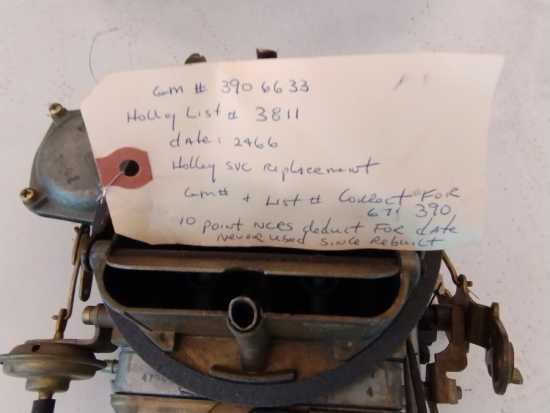 GM # 390 6633
Holley List # 3811
date: 2466
Holley SVC Replacement
GM # + List # Correct FOR
67' 390
10 point NCRS deduct FOR date
Never used since Rebuilt